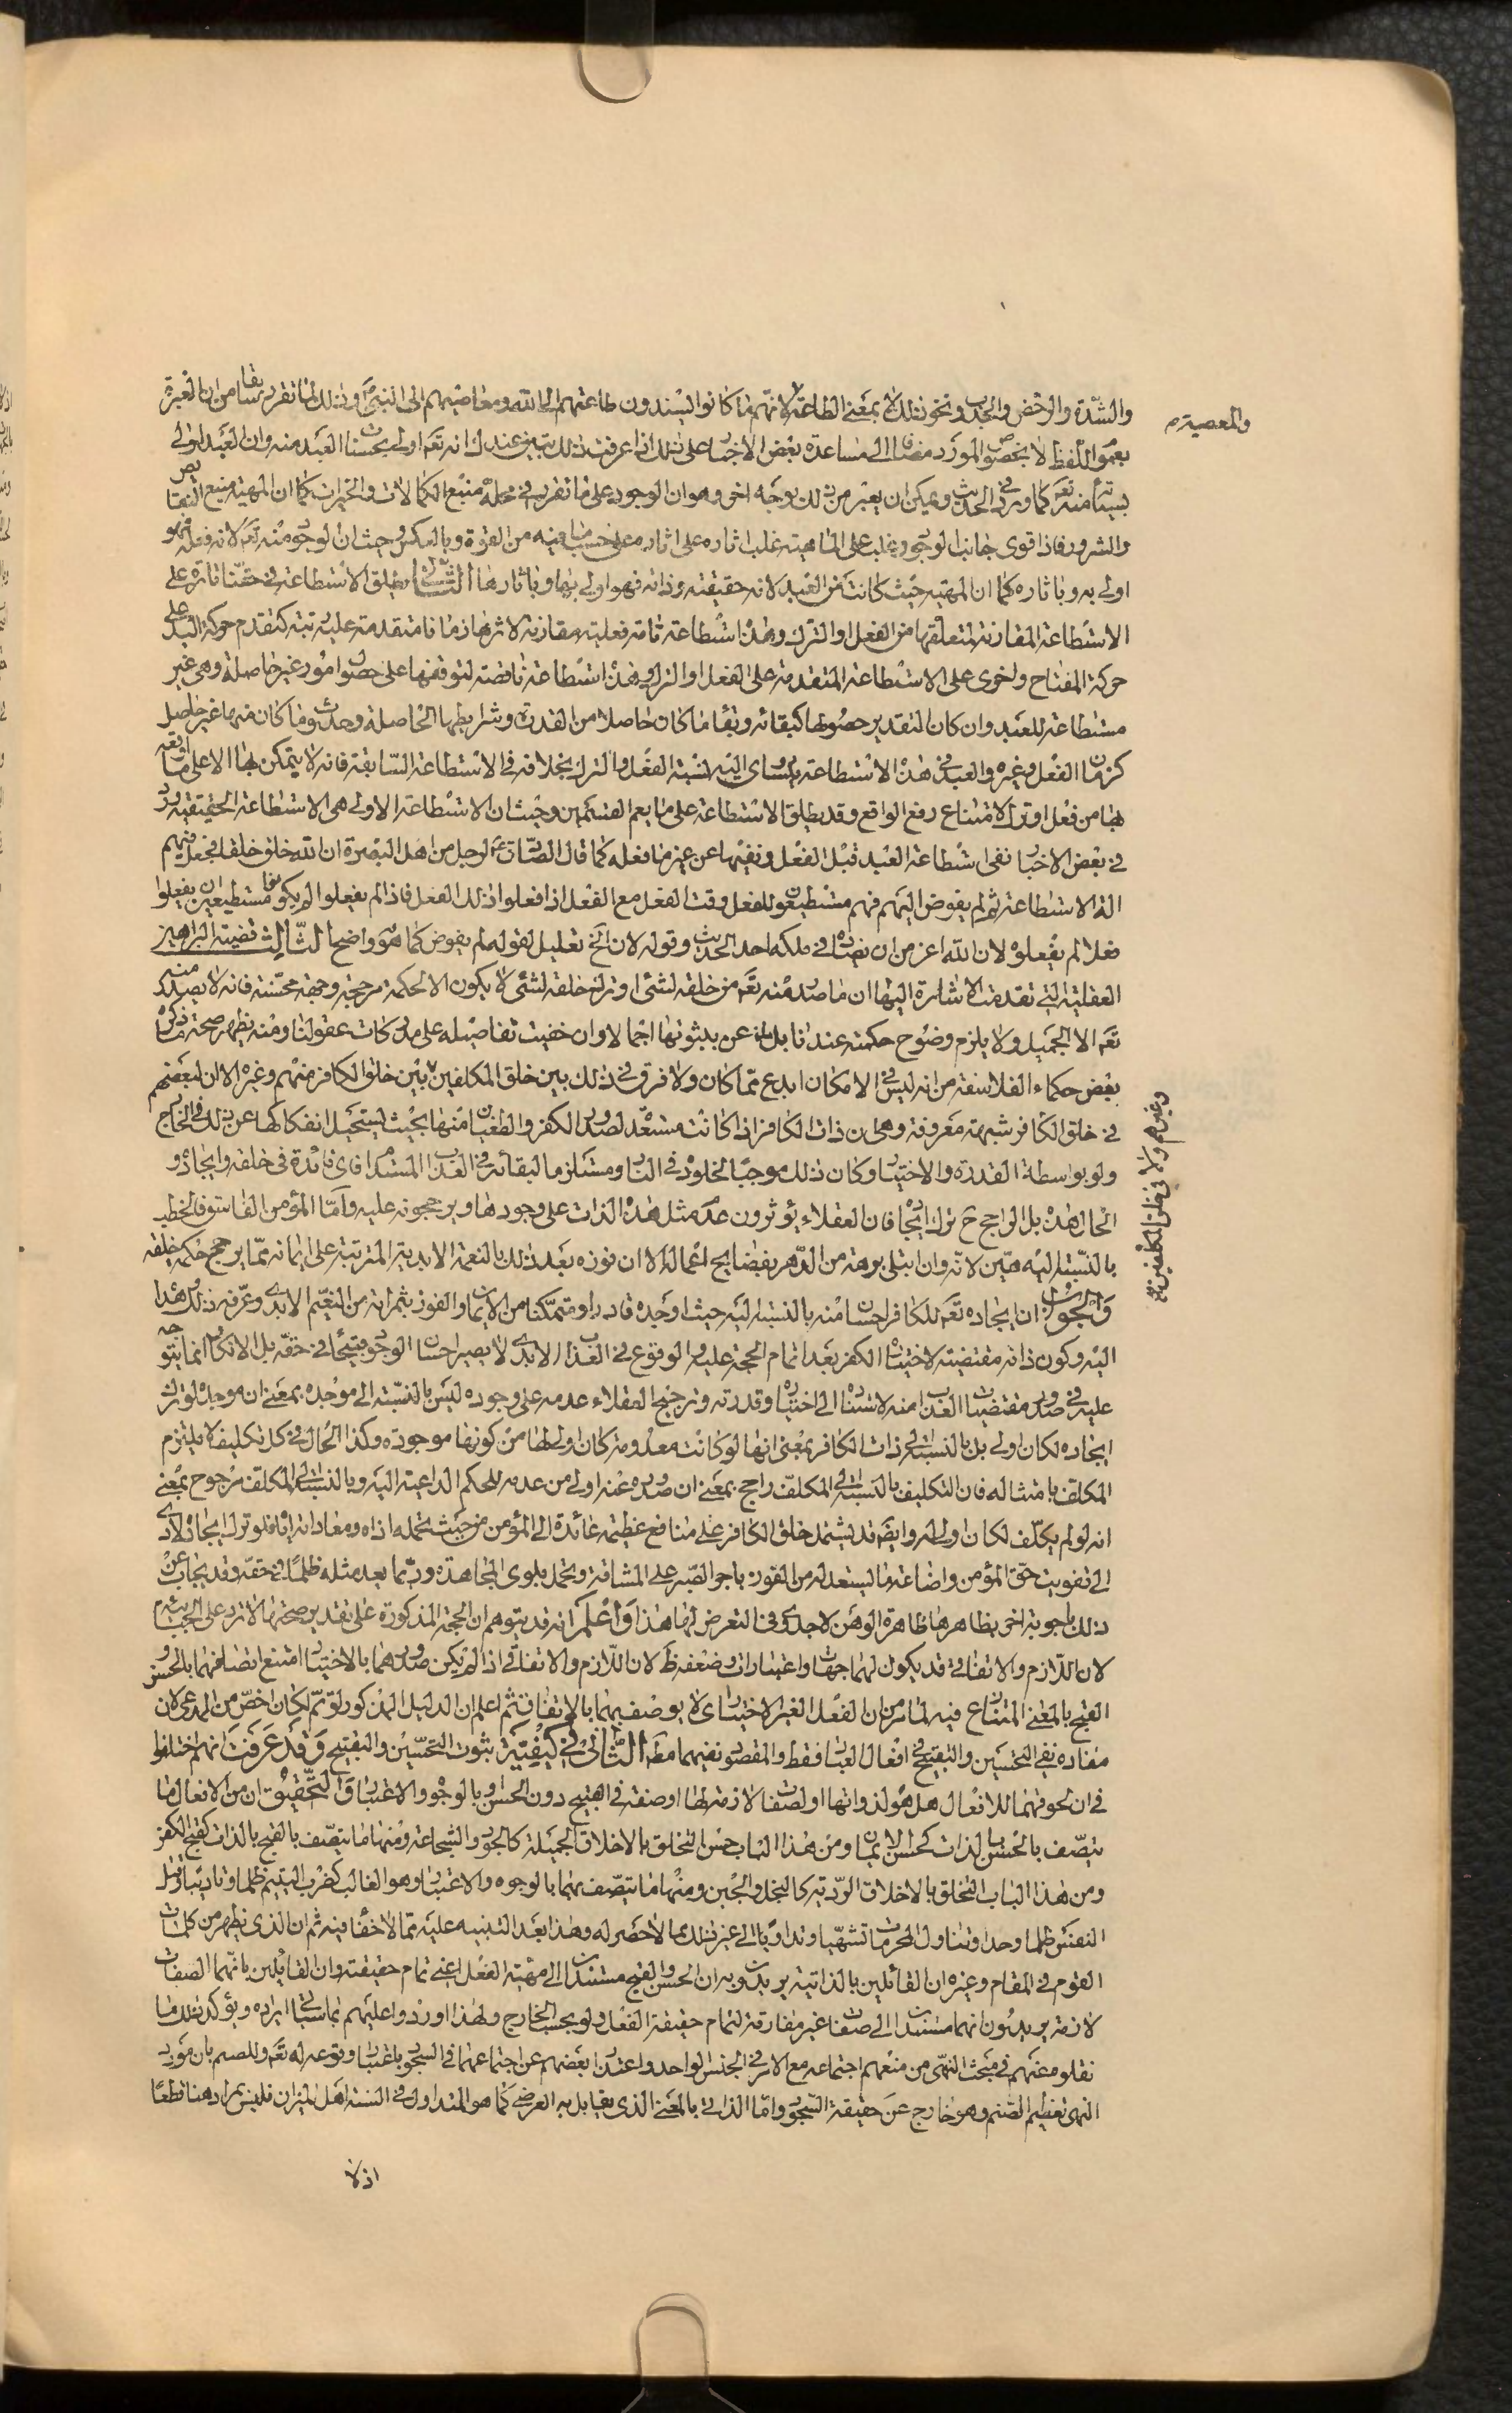 والشدة والرخص والجدب ونحو ذلك لا بمعنى الطاعة لانهم ما كانوا يسندون طاعتهم الى الله ومعاصيهم الى النبي ص وذلك لما تقرر سابقا من ان العبرة
والمعصية م
بعموم اللفظ لا بخصوص المورد مضافا الى مساعدة بعض الاخبار على ذلك اذا عرفت ذلك تبين عندك انه تعالى اولى بحسنات العبد منه وان العبد اولى
بسيئاته منه تعالى كما ورد في الحديث ويمكن ان يعتبر من ذلك بوجه اخر وهو ان الوجود على ما تقرر في محله منبع الكمالات والخيرات كما ان المهية منبع النقايص
والشرور فاذا قوى جانب الوجود وغلب على الماهية غلب اثاره على اثارها على حسب ما فيه من القوة وبالعكس وحيث ان الوجود منه تعالى لانه فعله فهو
اولى به وباثاره كما ان المهية حيث كانت من العبد لانه حقيقته وذاته فهو اولى بها وباثارها الثاني يطلق الاستطاعة في حقنا تارة على
الاستطاعة المقارنة لمتعلقها من الفعل او الترك وهذه استطاعة تامة فعلية مقارنة لاثرها زمانا متقدمة عليه رتبة كتقدم حركة اليد على
حركة المفتاح واخرى على الاستطاعة المتقدمة على الفعل او الترك وهذه استطاعة ناقصة لتوقفها على حصول امور غير حاصلة وهي غير
مستطاعة للعبد وان كان التقدير حصولها كبقائه وبقاء ما كان حاصلا من القدرة وشرايطها الحاصلة وحدوث ما كان منها غير حاصل
كزمان الفعل وغيره والعبد في هذه الاستطاعة يتساوى اليه نسبة الفعل والترك بخلافه في الاستطاعة السابقة فانه لا يتمكن بها الا على ما اوقعه
بها من فعل او ترك لامتناع رفع الواقع وقد يطلق الاستطاعة على ما يعم القسمين وحيث ان الاستطاعة الاولى هي الاستطاعة الحقيقية ورد
في بعض الاخبار نفى استطاعة العبد قبل الفعل ونفيها عن غير ما فعله كما قال الصادق ع لرجل من اهل البصرة ان الله خلق خلقا فجعل فيهم
الة الاستطاعة ثم لم يفوض اليهم فهم مستطيعون للفعل وقت الفعل مع الفعل اذا فعلوا ذلك الفعل فاذا لم يفعلوا لم يكونوا مستطيعين ان يفعلوا
فعلا لم يفعلوه لان الله اعز من ان يضاده في ملكه احد الحديث وقوله لان الخ تعليل لقوله لم يفوض كما هو واضح الثالث قضية البراهين
العقلية التي تقدمت الاشارة اليها ان ما صدر منه تعالى من خلقه لشئ او تركه خلقه لشئ لا يكون الا لحكمة مرجحة وجهة محسنة فانه لا يصدر منه
تعالى الا الجميل ولا يلزم وضوح حكمته عندنا بل عن بثبوتها اجمالا وان خفيت تفاصيله على مدركات عقولنا ومنه يظهر صحة ما ذكره
بعض حكماء الفلاسفة من انه ليس في الامكان ابدع مما كان ولا فرق في ذلك بين خلق المكلفين بين خلق الكافر منهم وغيره الا ان لبعضهم
وغيرهم ولا في خلق المكلفين صح
في خلق الكافر شبهة معروفة وهي ان ذات الكافر اذا كانت مستعدة لصدور الكفر والطغيان منها بحيث يستحيل انفكاكها عن ذلك في الخارج
ولو بواسطة القدرة والاختيار وكان ذلك موجبا لخلوده في النار ومستلزما لبقائه في العذاب المستدام فاي فائدة في خلقه وايجاده و
الحال هذه بل الراجح ح ترك ايجاده فان العقلاء يؤثرون عدم مثل هذه الذات على وجودها ويرجحونه عليه واما المؤمن الفاسق فالخطب
بالنسبة اليه هين لانه وان ابتلى برهة من الدهر بفضايح اعماله الا ان فوزه بعد ذلك بالنعمة الابدية المترتبة على ايمانه مما يرجح حكمة خلقه
والجواب ان ايجاده تعالى للكافر احسان منه بالنسبة اليه حيث اوجده قادرا ومتمكنا من الايمان والفوز بثمراته من النعيم الابدى وعرفه ذلك وهداه
اليه وكون ذاته مقتضية لاختيار الكفر بعد اتمام الحجة عليه والوقوع في العذاب الابدى لا يصير احسان الوجود قبيحا في حقه بل الانكار انما يتوجه
عليه في صدور مقتضيات العذاب منه لاستناده الى اختياره وقدرته وترجيح العقلاء عدمه على وجوده ليس بالنسبة الى موجده بمعنى ان موجده لو ترك
ايجاده لكان اولى بل بالنسبة الى ذات الكافر بمعنى انها لو كانت معدومة كان اولى لها من كونها موجودة وكذا الحال في كل تكليف لا يلتزم
المكلف بامتثاله فان التكليف بالنسبة الى المكلف راجح بمعنى ان صدوره عنه اولى من عدمه للحكم الداعية اليه وبالنسبة الى المكلف مرجوح بمعنى
انه لو لم يكلف لكان اولى له وايضا قد يشتمل خلق الكافر على منافع عظيمة عائدة الى المؤمن من حيث تحمله اذاه ومعاداته اياه فلو ترك ايجاده لادى
الى تفويت حق المؤمن واضاعة ما يستعد له من الفوز باجر الصبر على المشاق وتحمل بلوى المجاهدة وربما يعد مثله ظلما في حقه وقد يجاب عن
ذلك باجوبة اخر بظاهرها ظاهرة الوهن لا جدوى في التعرض لها هذا واعلم انه قد يتوهم ان الحجة المذكورة على تقدير صحتها لا ترد على الجبائية
لان اللازم والاتفاقي قد يكون لهما جهات واعتبارات وضعفه ظ لان اللازم والاتفاقي اذا لم يكن صدورهما بالاختيار امتنع اتصافهما بالحسن و
القبح بالمعنى المتنازع فيه لما مر من ان الفعل الغير الاختيارى لا يوصف بهما بالاتفاق ثم اعلم ان الدليل المذكور لو تم لكان اخص من المدعى لان
مفاده نفى التحسين والتقبيح في افعال العباد فقط والمقصود نفيهما مطلقا الثاني في كيفية ثبوت التحسين والتقبيح وقد عرفت انهم اختلفوا
في ان لحوقهما للافعال هل هو لذواتها او لصفات لازمة لها او صفة في القبيح دون الحسن او بالوجوه والاعتبارات والتحقيق ان من الافعال ما
يتصف بالحسن بالذات كحسن الايمان ومن هذا الباب حسن التخلق بالاخلاق الجميلة كالجود والشجاعة ومنها ما يتصف بالقبح بالذات كقبح الكفر
ومن هذا الباب التخلق بالاخلاق الردية كالبخل والجبن ومنها ما يتصف بهما بالوجوه والاعتبارات وهو الغالب كضرب اليتيم ظلما وتاديبا وقتل
النفس ظلما وحدا وتناول المحرمات تشهيا وتداويا الى غير ذلك مما لا حصر له وهذا بعد التنبيه عليه مما لا خفاء فيه ثم ان الذي يظهر من كلمات
القوم في المقام وغيره ان القائلين بالذاتية يريدون به ان الحسن والقبح مستندان الى مهية الفعل اعنى تمام حقيقته وان القائلين بانهما لصفات
لازمة يريدون انهما مستندان الى صفات غير مفارقة لتمام حقيقة الفعل ولو بحسب الخارج ولهذا اوردوا عليهم بما سياتى ايراده ويؤكد ذلك ما
نقلوه عنهم في مبحث النهى من منعهم اجتماعه مع الامر في الجنس الواحد واعتذار بعضهم عن اجتماعهما في السجود باعتبار وقوعه له تعالى وللصنم بان مورد
النهى تعظيم الصنم وهو خارج عن حقيقة السجود واما الذاتى بالمعنى الذي يقابل به العرضى كما هو المتداول في السنة اهل الميزان فليس بمراد هنا قطعا
اذ لا